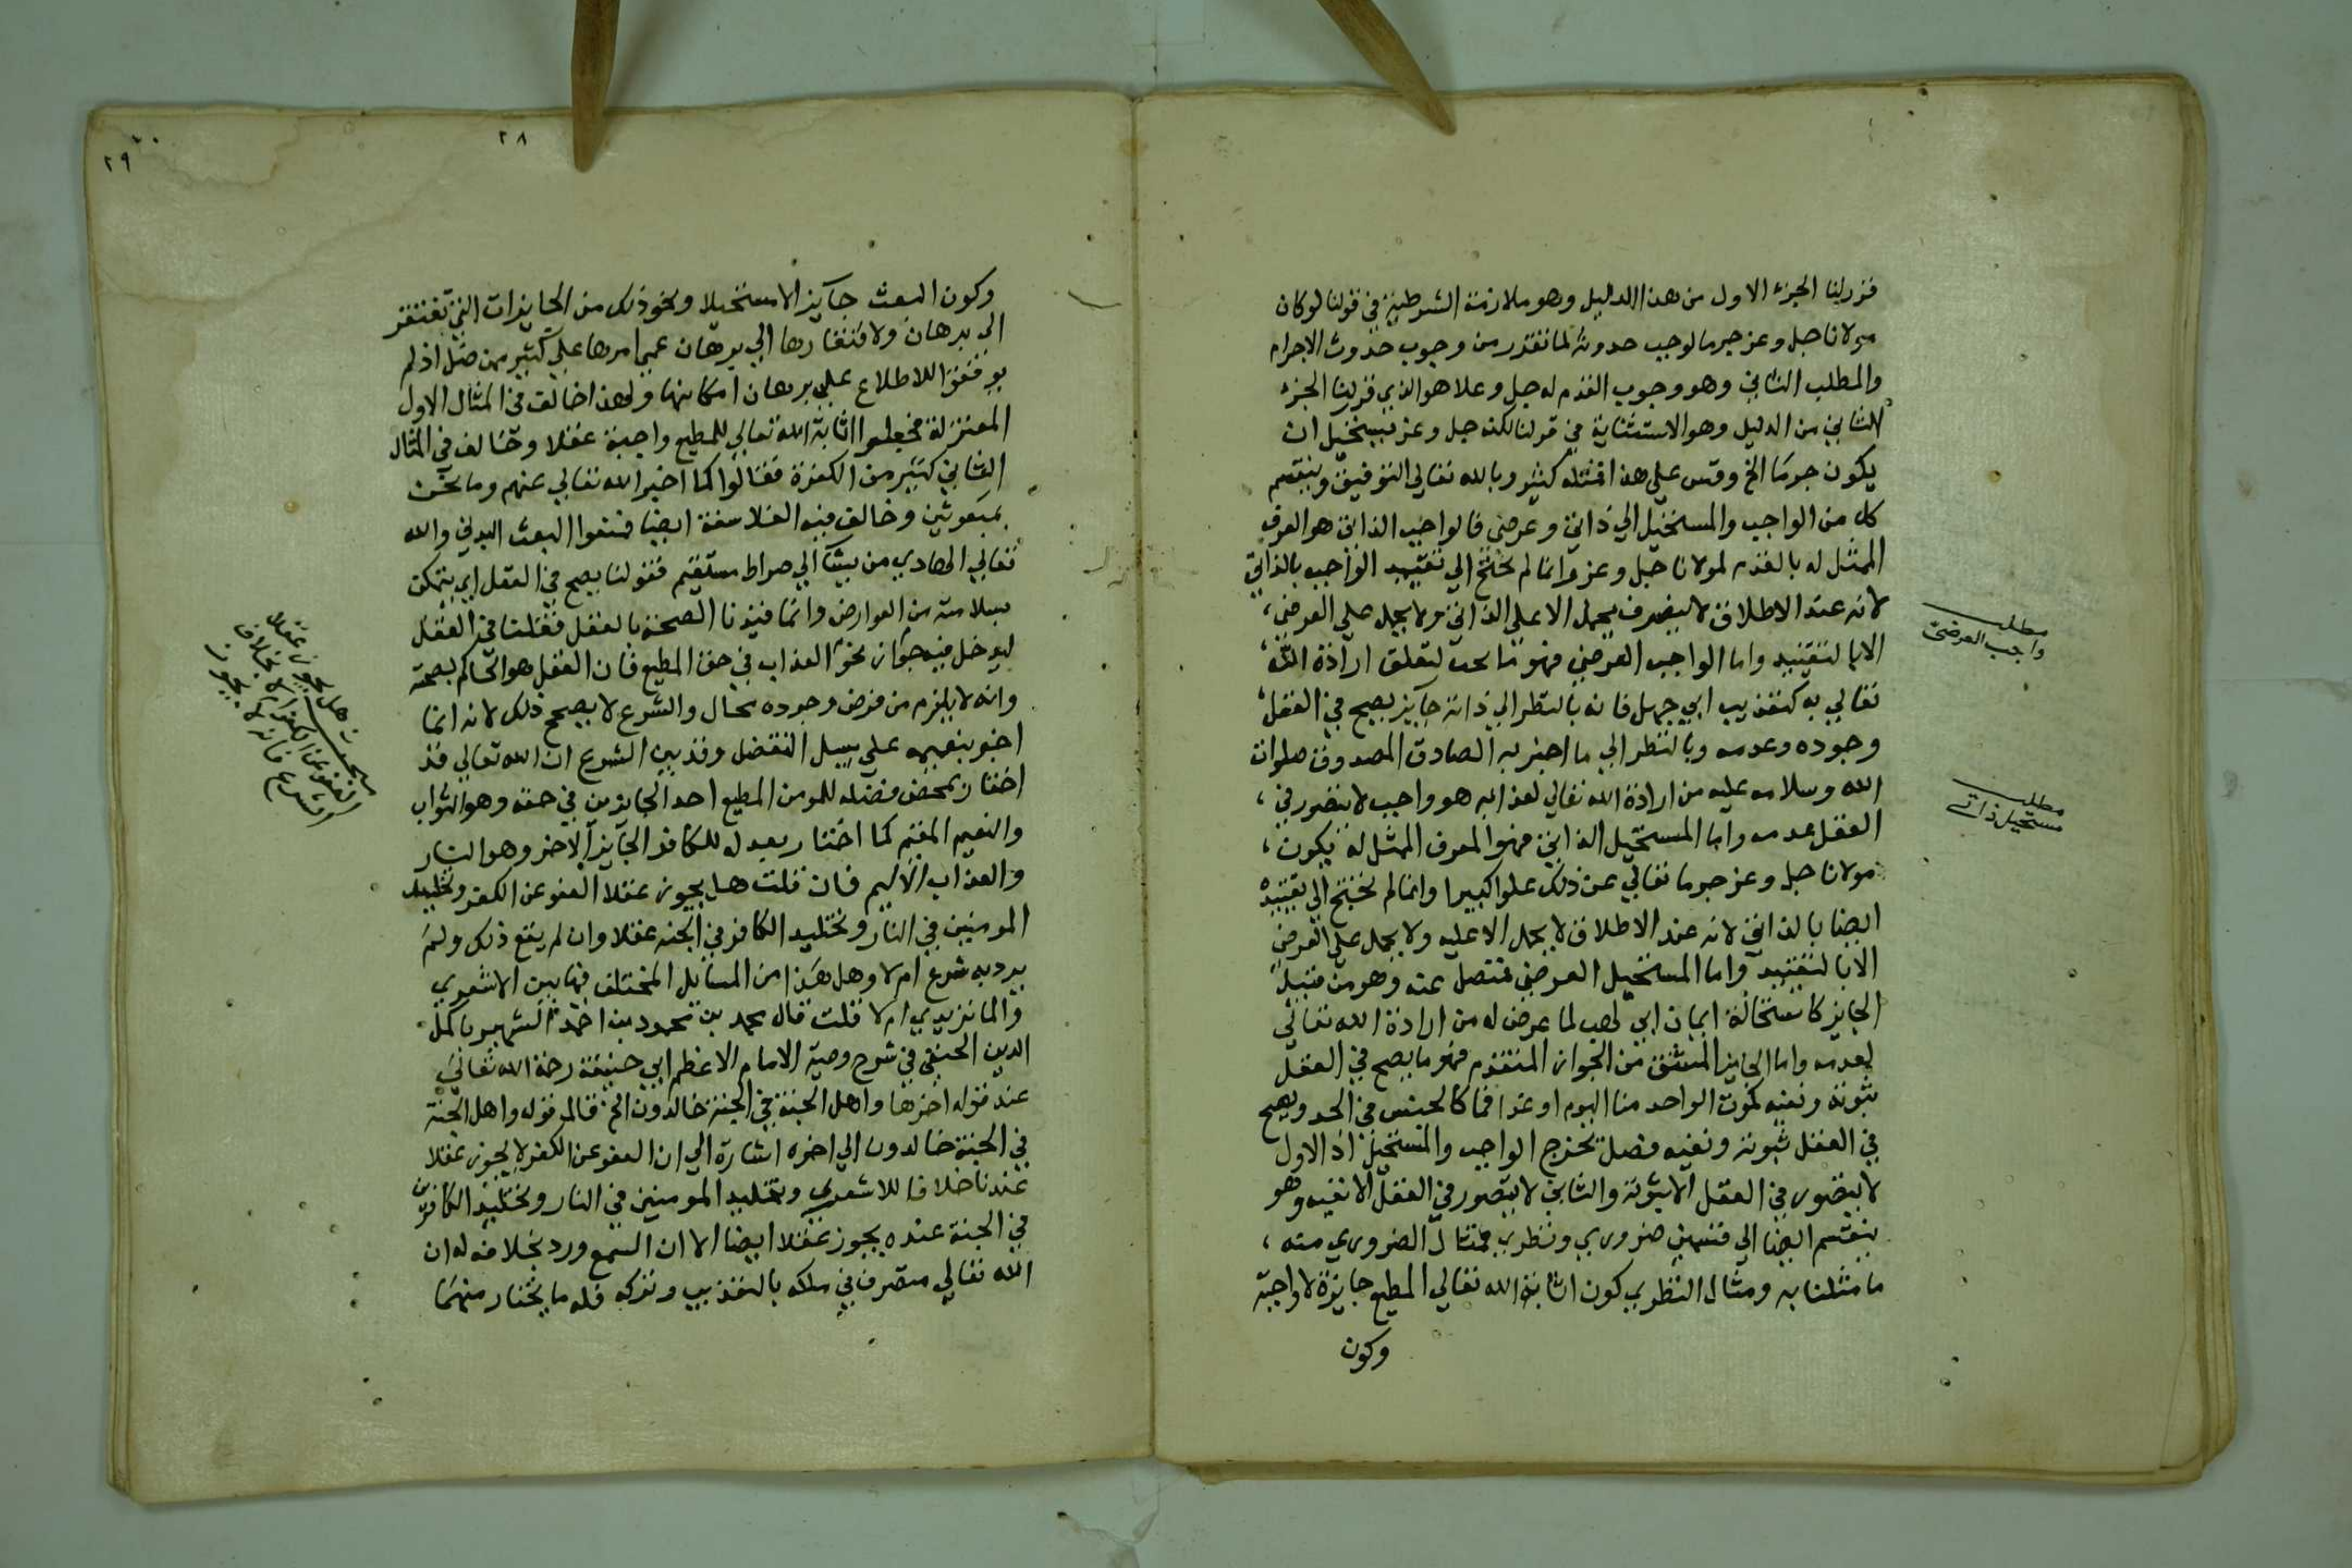 قررلنا الجزء الاول من هذا الدليل وهو ملازمة الشرطية في قولنا لو كان
مولانا جل وعز جرما لوجب حدوثه لما تقرر من وجوب حدوث الاجرام
والمطلب الثاني وهو وجوب القدم له جل وعلا هو الذي قررلنا الجزء
الثاني من الدليل وهو الاستثنائية في قولنا لكنه جل وعز يستحيل ان
يكون جرما الخ وقس على هذا امثلة كثيرة وبالله تعالى التوفيق وينقسم
كل من الواجب والمستحيل الى ذاتي وعرضي فالواجب الذاتي هو المعرف
الممثل له بالقدم لمولانا جل وعز وانما لم نحتج الى تقييد الواجب بالذاتي
لانه عند الاطلاق لا يحمل الا على الذاتي ولا يحمل على العرضي
الا بالتقييد واما الواجب العرضي فهو ما يجب لتعلق ارادة الله
تعالى به كتعذيب ابي جهل فانه بالنظر الى ذاته جايز يصح في العقل
وجوده وعدمه وبالنظر الى ما اخبر به الصادق المصدوق صلوات
الله وسلامه عليه من ارادة الله تعالى لعذابه هو واجب لا يتصور في
العقل عدمه واما المستحيل الذاتي فهو المعرف الممثل له بكون
مولانا جل وعز جرما تعالى عن ذلك علوا كبيرا وانما لم نحتج الى تقييده
ايضا بالذاتي لانه عند الاطلاق لا يحمل الا عليه ولا يحمل على العرضي
الا بالتقييد واما المستحيل العرضي فمنفصل عنه وهو من قبيل
الجايز كاستحالة ايمان ابي لهب لما عرض له من ارادة الله تعالى
لعدمه واما الجايز المشتق من الجواز المتقدم فهو ما يصح في العقل
ثبوته ونفيه كموت الواحد منا اليوم او غدا فما كالجنس في الحد ويصح
في العقل ثبوته ونفيه فصل يخرج الواجب والمستحيل اذ الاول
لا يتصور في العقل الا ثبوته والثاني لا يتصور في العقل الا نفيه وهو
ينقسم ايضا الى قسمين ضروري ونظري فمثال الضروري منه
ما مثلنا به ومثال النظري كون اثابة الله تعالى المطيع جايزة لا واجبة
وكون
مطلب
واجب العرضي
مطلب
مستحيل ذاتي
٢٨
٢٩
وكون البعث جايز الا مستحيلا ونحو ذلك من الجايزات التي تفتقر
الى برهان ولافتقارها الى برهان عمي امرها على كثير ممن ضل اذ لم
يوفقوا للاطلاع على برهان امكانها ولهذا خالف في المثال الاول
المعتزلة فجعلوا اثابة الله تعالى للمطيع واجبة عقلا وخالف في المثال
الثاني كثير من الكفرة فقالوا كما اخبر الله تعالى عنهم وما نحن
بمبعوثين وخالف فيه الفلاسفة ايضا فمنعوا البعث البدني والله
تعالى الهادي من يشا الى صراط مستقيم فقولنا يصح في العقل اي يتمكن
بسلامته من العوارض وانما قيدنا الصحة بالعقل فقلنا في العقل
ليدخل فيه جواز نحو العذاب في حق المطيع فان العقل هو الحاكم بصحته
وانه لا يلزم من فرض وجوده محال والشرع لا يصحح ذلك لانه انما
اخبر بنعيمه على سبيل التفضل وقد بين الشرع ان الله تعالى قد
اختار بمحض فضله للمومن المطيع احد الجايزين في حقه وهو الثواب
والنعيم المقيم كما اختار بعدله للكافر الجايز الاخر وهو النار
والعذاب الاليم فان قلت هل يجوز عقلا العفو عن الكفر وتخليد
المومنين في النار وتخليد الكافر في الجنة عقلا وان لم يقع ذلك ولم
يرد به شرع ام لا وهل هذا من المسايل المختلف فيها بين الاشعري
والماتريدي ام لا قلت قال محمد بن محمود بن احمد الشهير باكمل
الدين الحنفي في شرح وصية الامام الاعظم ابي حنيفة رحمة الله تعالى
عند قوله اخرها واهل الجنة في الجنة خالدون الخ قال قوله واهل الجنة
في الجنة خالدون الى اخره اشارة الى ان العفو عن الكفر لا يجوز عقلا
عندنا خلافا للاشعري وتخليد المومنين في النار وتخليد الكافرين
في الجنة عنده يجوز عقلا ايضا الا ان السمع ورد بخلافه له ان
الله تعالى متصرف في ملكه بالتعذيب وتركه فله ما يختار منهما
مبحث هل يجوز عقلا
العفو عن الكفر